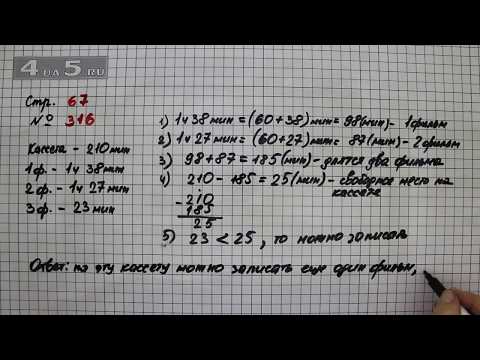 4 UA 5.RU
Стр. 67
№ 316
Кассета - 210 мин
1 ф. - 1 ч 38 мин
2 ф. - 1 ч 27 мин
3 ф. - 23 мин
1) 1 ч 38 мин = (60 + 38) мин = 98 (мин) - 1 фильм
2) 1 ч 27 мин = (60 + 27) мин = 87 (мин) - 2 фильм
3) 98 + 87 = 185 (мин) - длятся два фильма
4) 210 - 185 = 25 (мин) - свободное место на
кассете
- 210
185
25
5) 23 < 25, то можно записать
Ответ: на эту кассету можно записать еще один фильм,